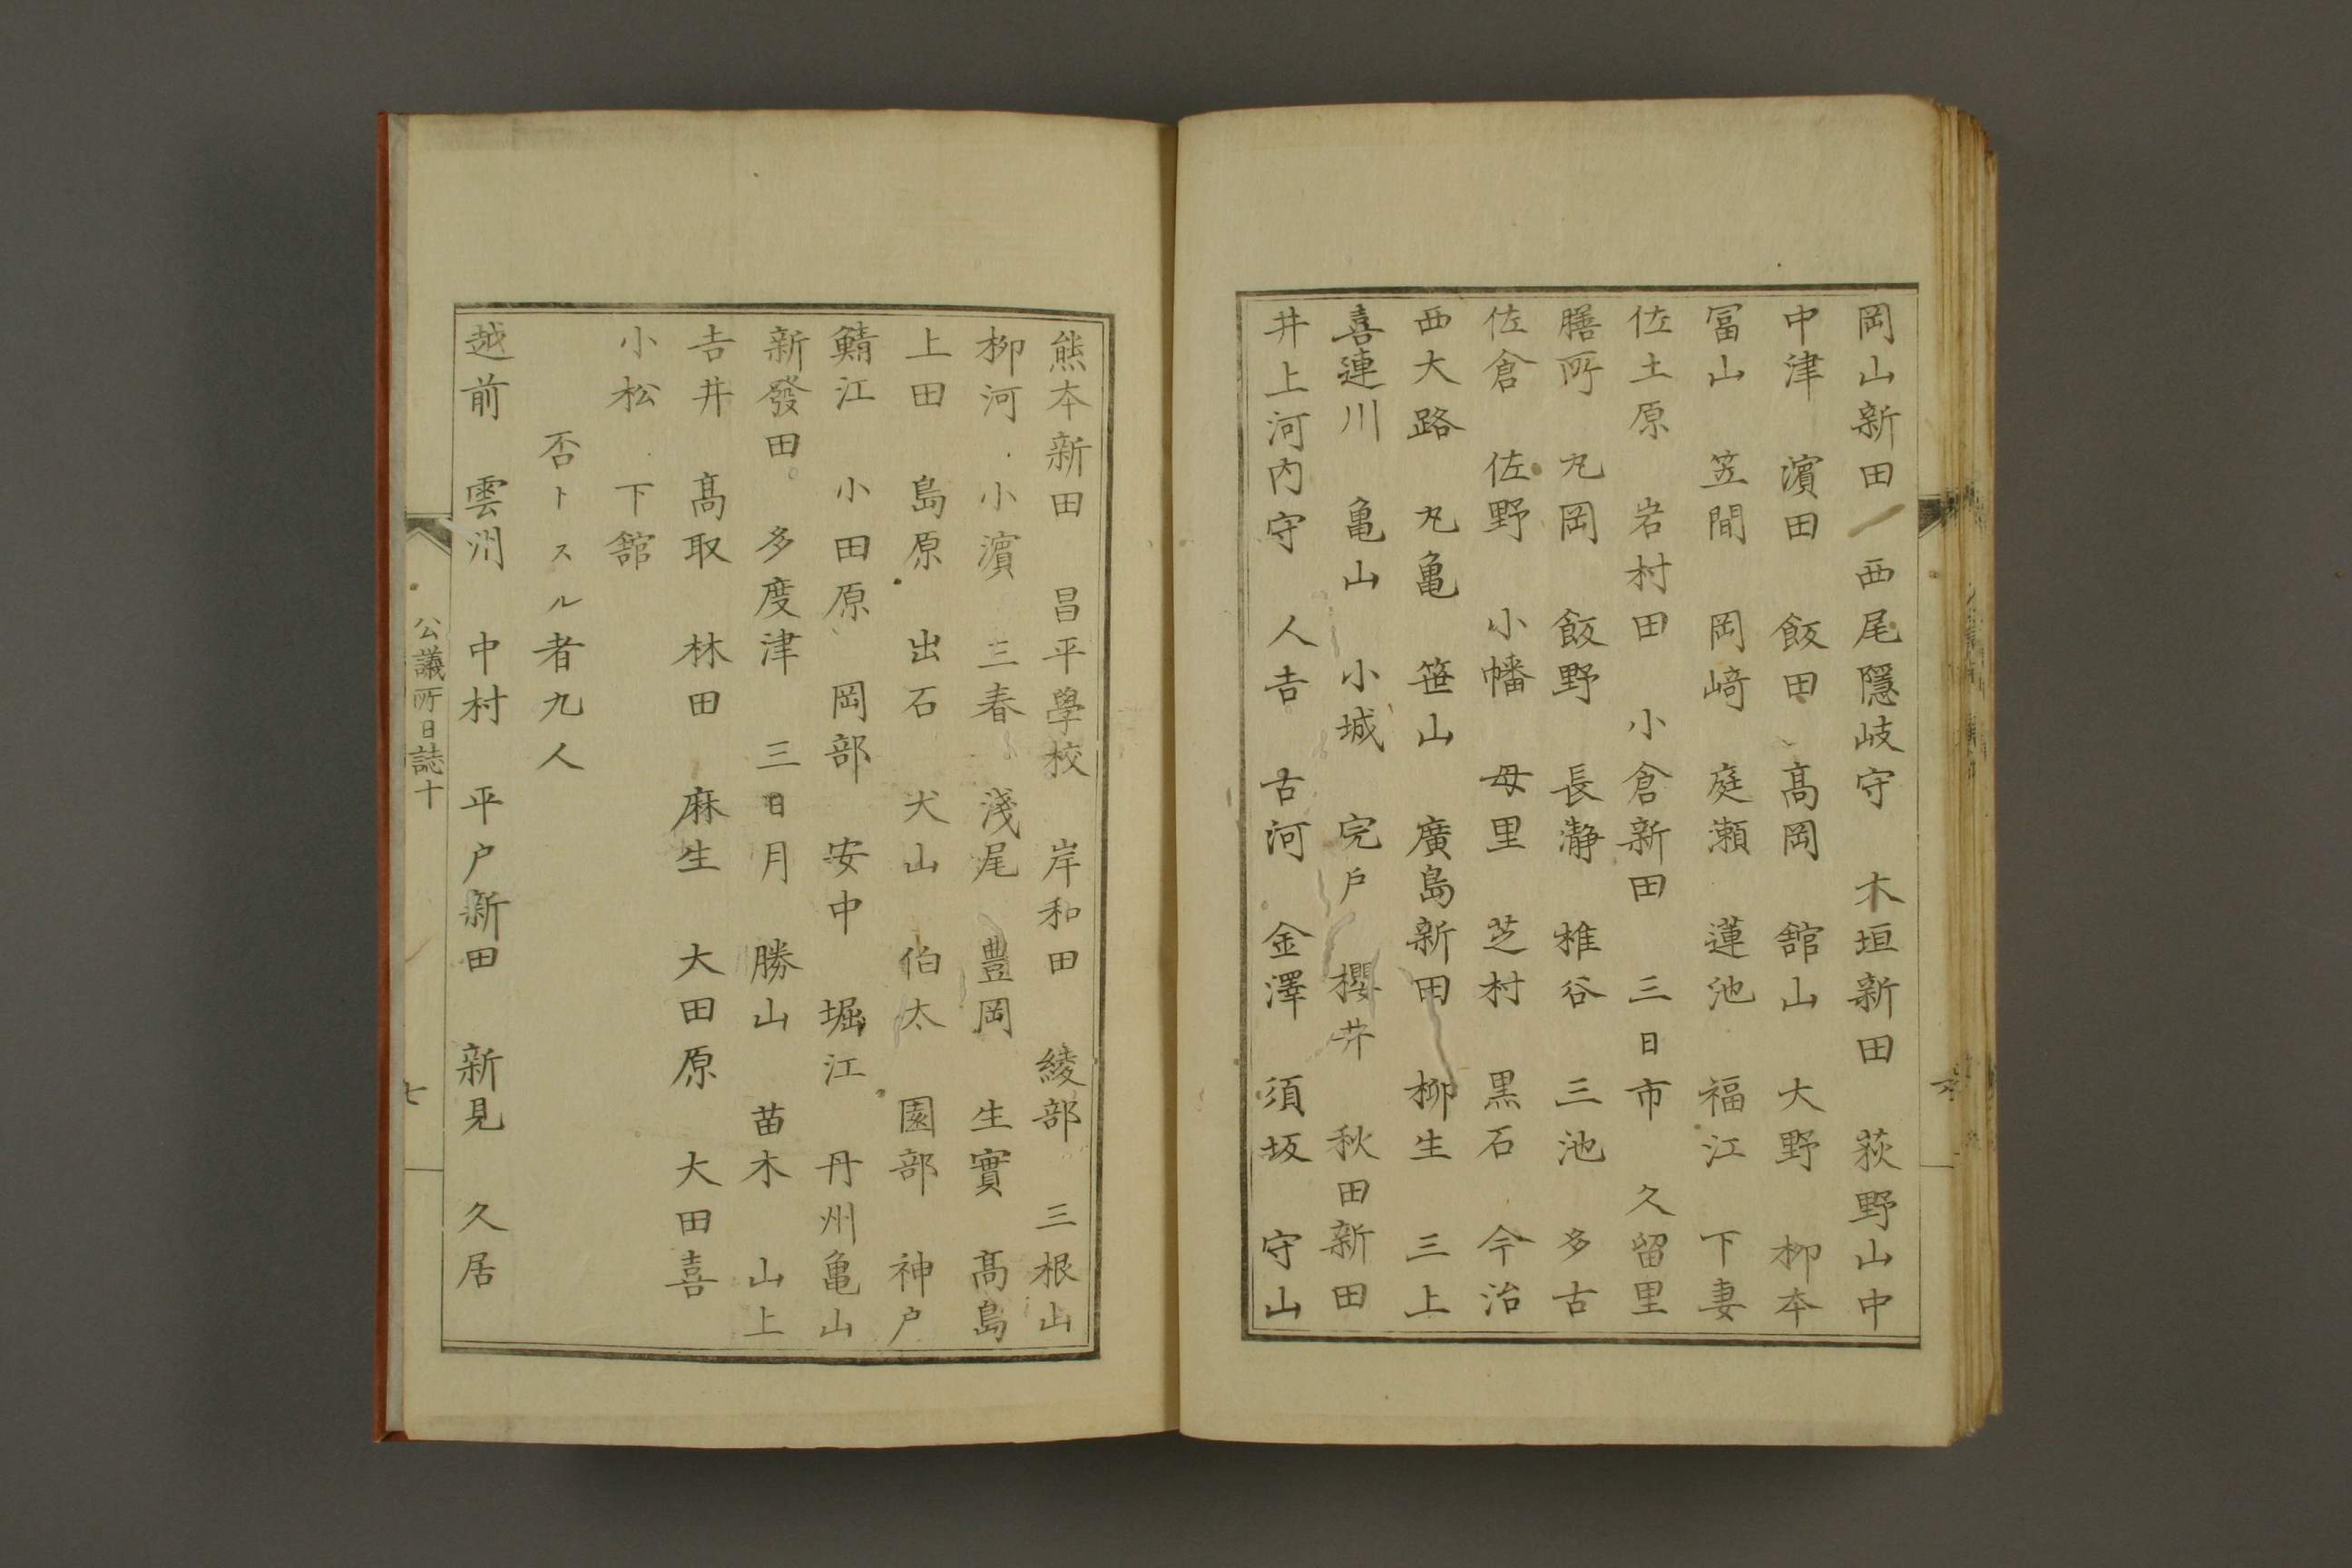 岡山新田　西尾隱岐守　木垣新田　荻野山中
中津　濱田　飯田　髙岡　舘山　大野　柳本
冨山　笠間　岡﨑　庭瀬　蓮池　福江　下妻
佐土原　岩村田　小倉新田　三日市　久留里
膳所　丸岡　飯野　長瀞　椎谷　三池　多古
佐倉　佐野　小幡　母里　芝村　黒石　今治
西大路　丸亀　笹山　廣島新田　柳生　三上
喜連川　亀山　小城　完戸　櫻井　秋田新田
井上河内守　人吉　古河　金澤　須坂　守山
熊本新田　昌平學校　岸和田　綾部　三根山
柳河　小濱　三春　淺尾　豊岡　生實　髙島
上田　島原　出石　犬山　伯太　園部　神戸
鯖江　小田原　岡部　安中　堀江　丹州亀山
新發田　多度津　三日月　勝山　苗木　山上
吉井　髙取　林田　麻生　大田原　大田喜
小松　下舘
否トスル者九人
越前　雲州　中村　平戸新田　新見　久居
公議所日誌十
七